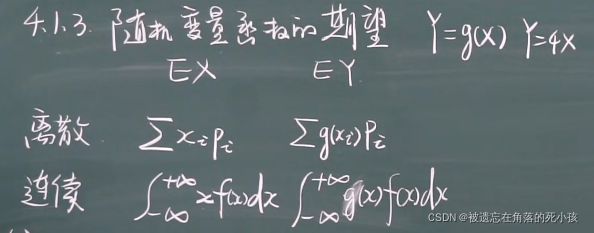 4.1.3. 随机变量函数的期望 Y=g(x) Y=4x
EX EY
离散 ∑xᵢpᵢ ∑g(xᵢ)Pᵢ
连续 ∫_{-∞}^{+∞} xf(x)dx ∫_{-∞}^{+∞} g(x)f(x)dx
CSDN @被遗忘在角落的死小孩